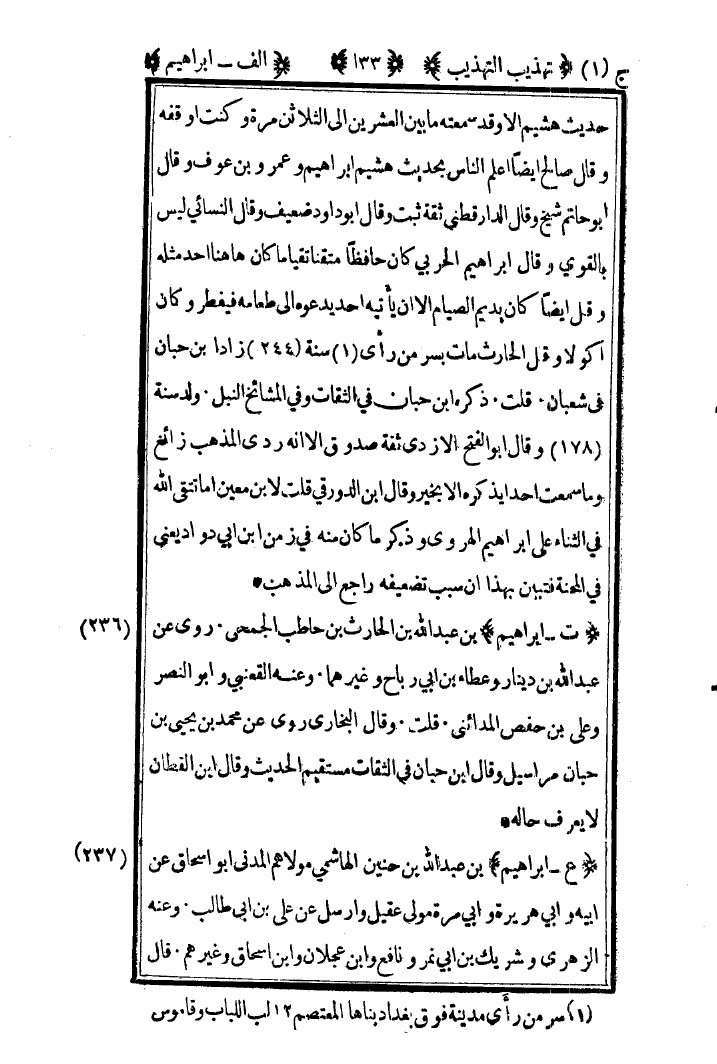 ج (١) ﴿ تهذيب التهذيب ﴾ ﴿ ١٣٣ ﴾ ﴿ الف ـ ابراهيم ﴾
حديث هشيم الا وقد سمعته ما بين العشرين الى الثلاثين مرة وكنت اوقفه
وقال صالح ايضًا اعلم الناس بحديث هشيم ابراهيم وعمرو بن عوف وقال
ابو حاتم شيخ وقال الدارقطني ثقة ثبت وقال ابو داود ضعيف وقال النسائي ليس
بالقوي وقال ابراهيم الحربي كان حافظًا متقنا تقيا ما كان هاهنا احد مثله
وقل ايضًا كان يديم الصيام الا ان يأتيه احد يدعوه الى طعامه فيفطر وكان
اكولا وقل الحارث مات بسر من رأى (١) سنة (٢٤٤) زادا بن حبان
فى شعبان ٠ قلت ٠ ذكره ابن حبان في الثقات وفي المشائخ النبل ٠ ولد سنة
(١٧٨) وقال ابو الفتح الازدى ثقة صدوق الا انه ردى المذهب زائغ
وما سمعت احدا يذكره الا بخير وقال ابن الدورقي قلت لابن معين اما تتقى الله
في الثناء على ابراهيم الهروى وذكر ما كان منه في زمن ابن ابي دواد يعنى
في المحنة فتبين بهذا ان سبب تضعيفه راجع الى المذهب •
﴿ ت ـ ابراهيم ﴾ بن عبدالله بن الحارث بن حاطب الجمحى ٠ روى عن (٢٣٦)
عبدالله بن دينار وعطاء بن ابي رباح وغيرهما ٠ وعنه القعنبي وابو النصر
وعلى بن حفص المدائنى ٠ قلت ٠ وقال البخارى روى عن محمد بن يحيى بن
حبان مراسيل وقال ابن حبان في الثقات مستقيم الحديث وقال ابن القطان
لا يعرف حاله •
﴿ ع ـ ابراهيم ﴾ بن عبدالله بن حنين الهاشمي مولاهم المدنى ابو اسحاق عن (٢٣٧)
ابيه وابي هريرة وابي مرة مولى عقيل وارسل عن على بن ابى طالب ٠ وعنه
الزهرى وشريك بن ابي نمر ونافع وابن عجلان وابن اسحاق وغيرهم ٠ قال
(١) سر من رأى مدينة فوق بغداد بناها المعتصم ١٢ لب اللباب وقاموس